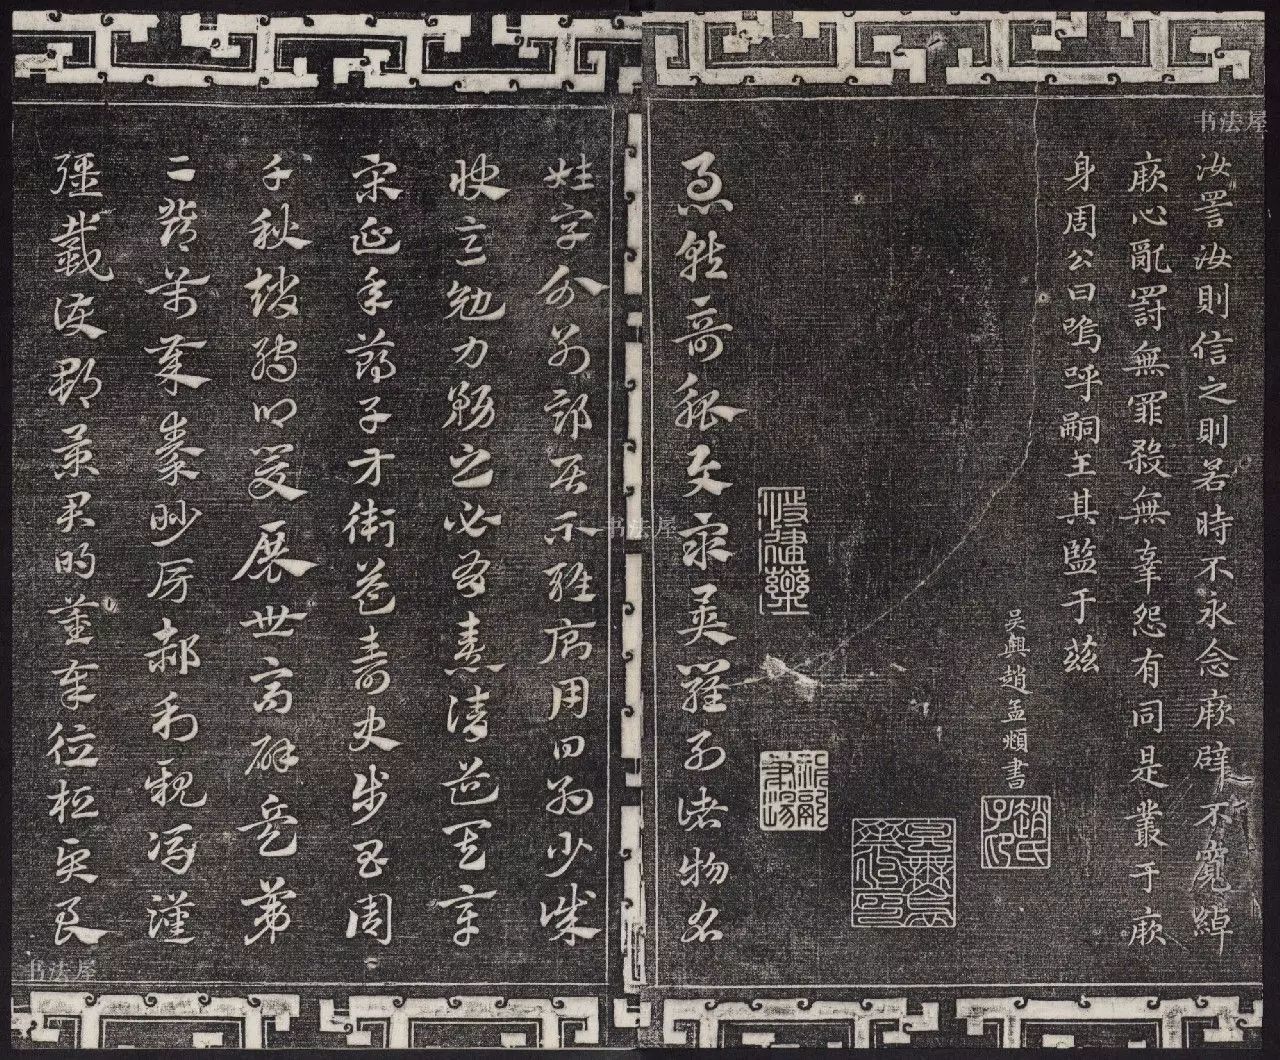 汝詈汝則信之則若時不永念厥辟不寬綽
厥心亂罰無罪殺無辜怨有同是叢于厥
身周公曰嗚呼嗣王其監于茲
吳興趙孟頫書
趙氏子昂
急就奇觚與衆異羅列諸物名
姓字分別部居不雜廁用日約少誠
快意勉力務之必有憙請道其章
宋延年鄭子方衛益壽史步昌周
千秋趙孺卿爰展世高辟兵第
二鄧萬歲秦眇房郝利親馮漢
彊戴護郡景君明董奉德桓賢良
书法屋
书法屋
书法屋